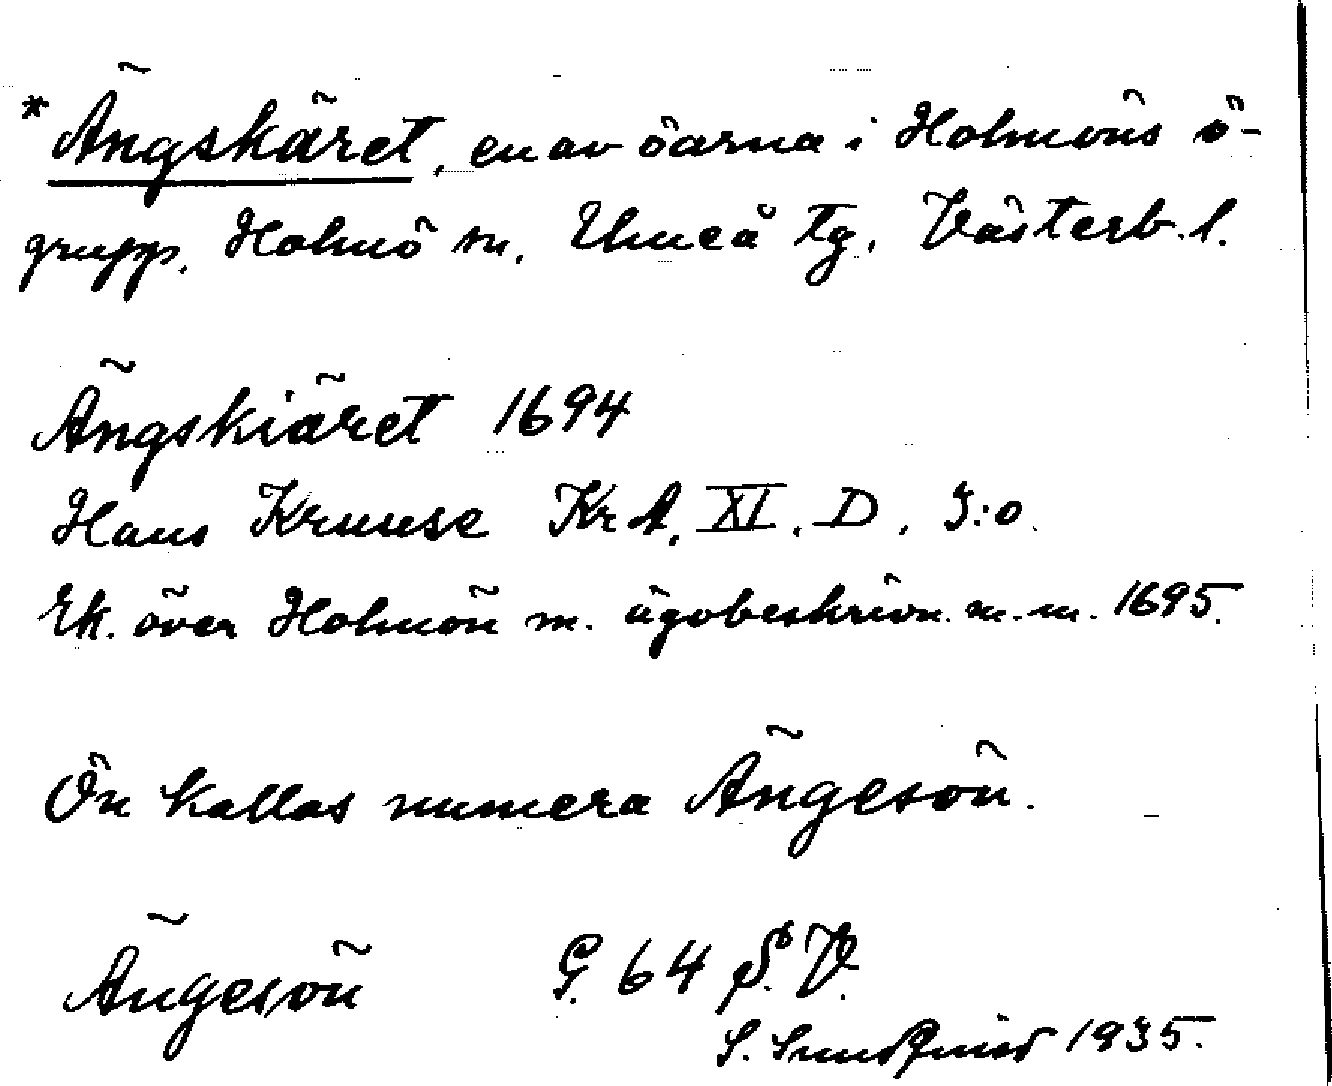 *Ängskäret, en av öarna i Holmöns ö-
grupp, Holmö sn, Umeå tg, Västerb. l.
Ängskiäret 1694
Hans Kruuse KrA, XI. D. 3:o.
Ek. över Holmön m. ägobeskrivn. m.m. 1695.
Ön kallas numera Ängesön.
Ängesön G. 64 S.V.
S. Sundqvist 1935.